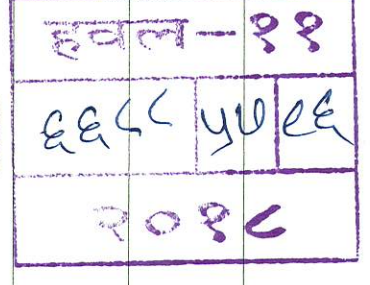 हवल-११
६६८८ ५७ ९६
२०१८